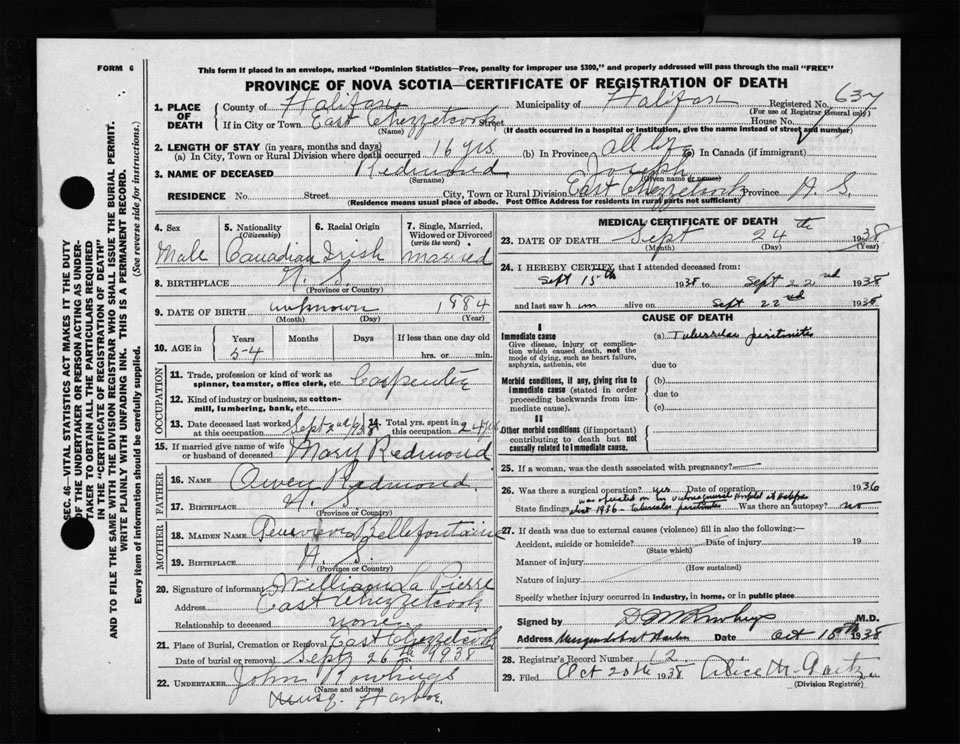 FORM 6
This form if placed in an envelope, marked "Dominion Statistics—Free, penalty for improper use $300," and properly addressed will pass through the mail "FREE"
PROVINCE OF NOVA SCOTIA—CERTIFICATE OF REGISTRATION OF DEATH
1. PLACE OF DEATH County of Halifax Municipality of Halifax Registered No. 637
(For use of Registrar General only)
If in City or Town East Chezzetcook Street House No.
(Name) (If death occurred in a hospital or institution, give the name instead of street and number)
2. LENGTH OF STAY (in years, months and days)
(a) In City, Town or Rural Division where death occurred 16 yrs. (b) In Province all life (c) In Canada (if immigrant)
3. NAME OF DECEASED Redmond Joseph
(Surname) (Given name or names)
RESIDENCE No. Street City, Town or Rural Division East Chezzetcook Province N. S.
(Residence means usual place of abode. Post Office Address for residents in rural parts not sufficient)
4. Sex 5. Nationality (Citizenship) 6. Racial Origin 7. Single, Married, Widowed or Divorced (write the word)
Male Canadian Irish married
8. BIRTHPLACE N. S.
(Province or Country)
9. DATE OF BIRTH unknown 1984
(Month) (Day) (Year)
10. AGE in Years Months Days If less than one day old
54 hrs. or min.
OCCUPATION
11. Trade, profession or kind of work as spinner, teamster, office clerk, etc. Carpenter
12. Kind of industry or business, as cotton-mill, lumbering, bank, etc.
13. Date deceased last worked at this occupation Sept 2nd 1938 14. Total yrs. spent in this occupation 24 yrs
15. If married give name of wife or husband of deceased Mary Redmond
FATHER
16. NAME Owen Redmond
17. BIRTHPLACE N. S.
(Province or Country)
MOTHER
18. MAIDEN NAME Bellefontaine
19. BIRTHPLACE N. S.
(Province or Country)
20. Signature of informant William La Pierre
Address East Chezzetcook
Relationship to deceased none
21. Place of Burial, Cremation or Removal East Chezzetcook
Date of burial or removal Sept 26th 1938
22. UNDERTAKER John Rowlings
(Name and address)
Musq. Harbor
MEDICAL CERTIFICATE OF DEATH
23. DATE OF DEATH Sept 24th 1938
(Month) (Day) (Year)
24. I HEREBY CERTIFY, that I attended deceased from:
Sept 15th 1938 to Sept 22nd 1938
and last saw him alive on Sept 22nd 1938
CAUSE OF DEATH
I
Immediate cause (a) Tubercular peritonitis
Give disease, injury or complication which caused death, not the mode of dying, such as heart failure, asphyxia, asthenia, etc
due to
Morbid conditions, if any, giving rise to immediate cause (stated in order proceeding backwards from immediate cause).
(b)
due to
(c)
II
Other morbid conditions (if important) contributing to death but not causally related to immediate cause.
25. If a woman, was the death associated with pregnancy?
26. Was there a surgical operation? yes Date of operation 1936
was operated on in Hospital at Halifax
State findings 1936 - tubercular peritonitis Was there an autopsy? no
27. If death was due to external causes (violence) fill in also the following:—
Accident, suicide or homicide? Date of injury 19
(State which)
Manner of injury
(How sustained)
Nature of injury
Specify whether injury occurred in industry, in home, or in public place
Signed by M.D.
Address Musquodoboit Harbor Date Oct 15th 1938
28. Registrar's Record Number 12
29. Filed Oct 20th 1938 Alice M.
(Division Registrar)
SEC. 46—VITAL STATISTICS ACT MAKES IT THE DUTY OF THE UNDERTAKER OR PERSON ACTING AS UNDERTAKER TO OBTAIN ALL THE PARTICULARS REQUIRED IN THE "CERTIFICATE OF REGISTRATION OF DEATH" AND TO FILE THE SAME WITH THE DIVISION REGISTRAR WHO SHALL ISSUE THE BURIAL PERMIT.
WRITE PLAINLY WITH UNFADING INK. THIS IS A PERMANENT RECORD.
Every item of information should be carefully supplied. (See reverse side for instructions.)